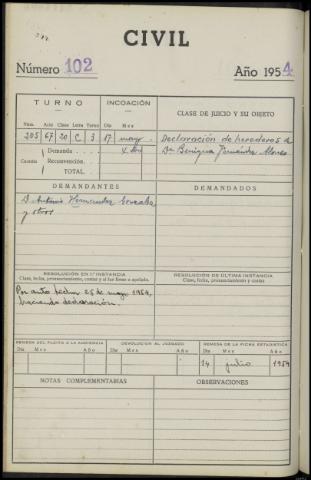 CIVIL
Número 102 Año 1954
TURNO INCOACIÓN CLASE DE JUICIO Y SU OBJETO
Núm. Año Clase Letra Turno Día Mes
205 67 20 C 3 17 mayo Declaración de herederos de
Demanda Dª Benigna Fernández Alonso
Cuantía Reconvención.
TOTAL
DEMANDANTES DEMANDADOS
D. Antonio
y otros
RESOLUCIÓN EN 1.ª INSTANCIA RESOLUCIÓN DE ÚLTIMA INSTANCIA
Clase, fecha, pronunciamiento, costas y si fue firme o apelada. Clase, fecha, pronunciamiento y costas
Por auto fecha 25 de mayo 1954,
haciendo declaración.
REMESA DEL PLEITO A LA AUDIENCIA DEVOLUCIÓN AL JUZGADO REMESA DE LA FICHA ESTADÍSTICA
Día Mes Año Día Mes Año Día Mes Año
14 julio 1954
NOTAS COMPLEMENTARIAS OBSERVACIONES